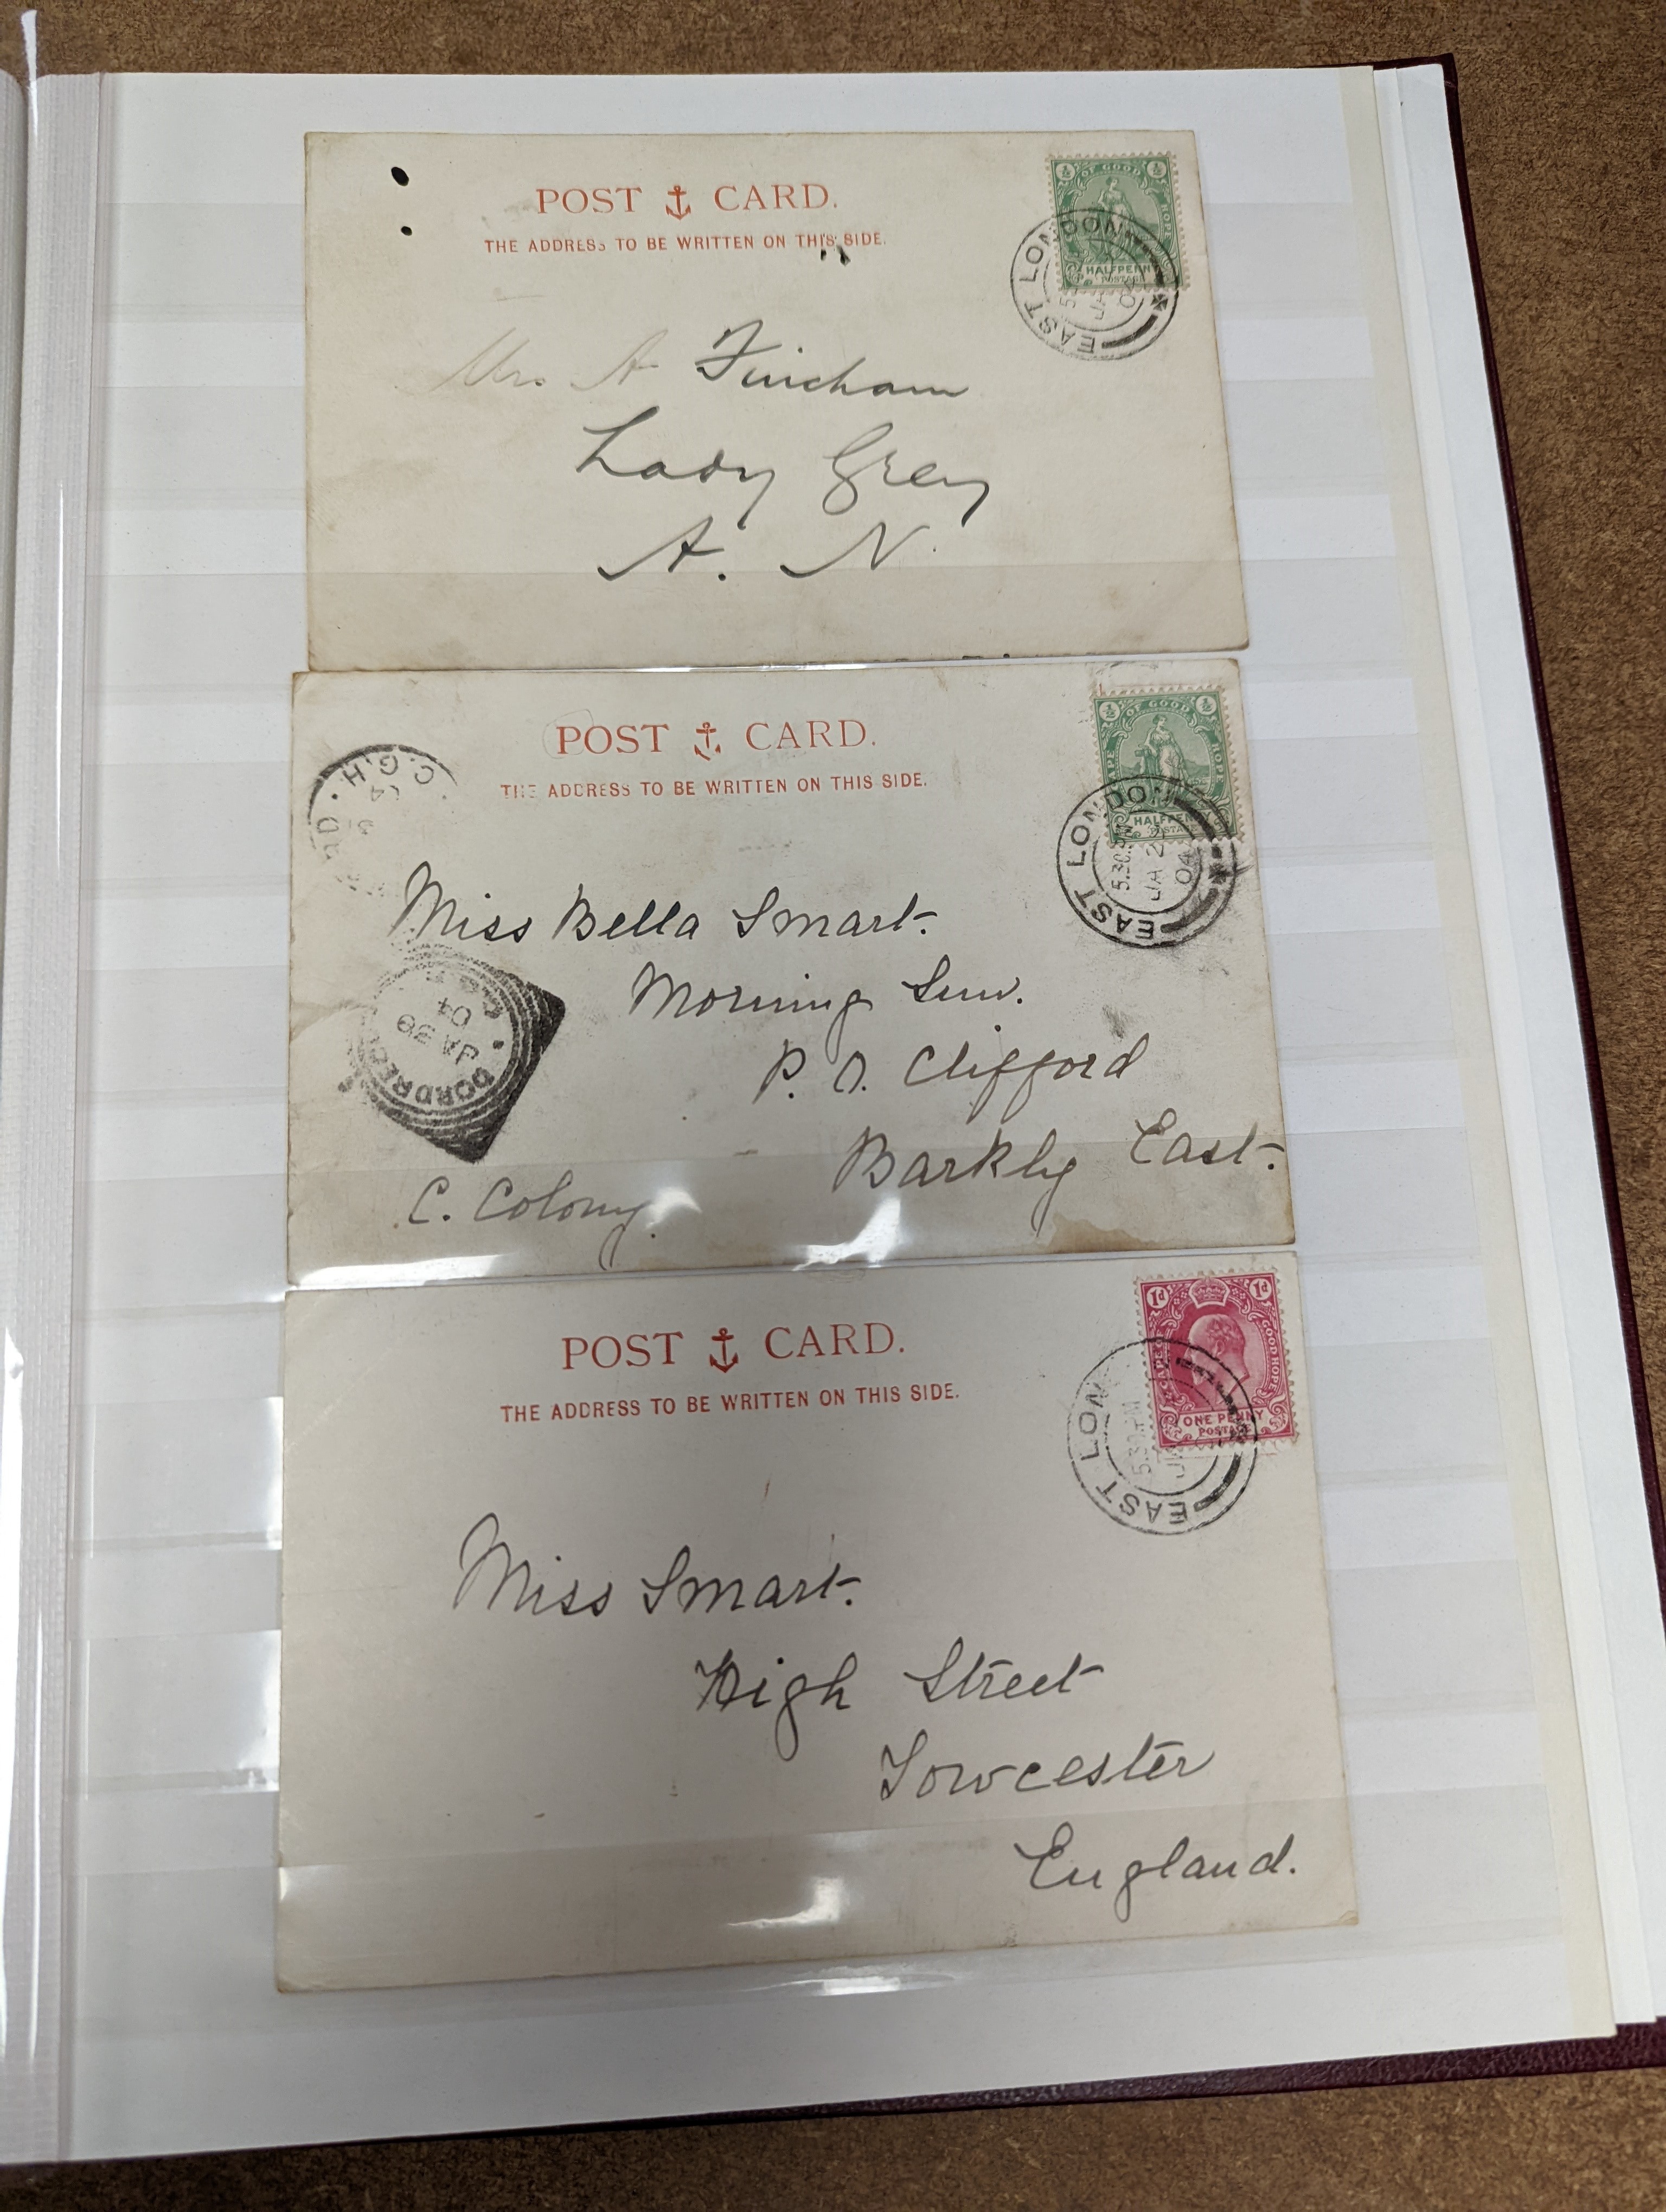 POST CARD.
THE ADDRESS TO BE WRITTEN ON THIS SIDE.
½ OF GOOD ½
HOPE
HALFPENNY
POSTAGE
EAST LONDON
JA
04
Mrs A Fincham
Lady Grey
A. N.
POST CARD.
THE ADDRESS TO BE WRITTEN ON THIS SIDE.
½ OF GOOD ½
CAPE HOPE
HALFPENNY
POSTAGE
EAST LONDON
5.30.PM
JA 2
04
C.G.H.
DORDRE
JA 30
04
Miss Bella Smart.
Morning Sun.
P. O. Clifford
Barkly East.
C. Colony.
POST CARD.
THE ADDRESS TO BE WRITTEN ON THIS SIDE.
1d 1d
CAPE O GOOD HOPE
ONE PENNY
POSTAGE
EAST LON
5.30.PM
Miss Smart.
High Street
Towcester
England.